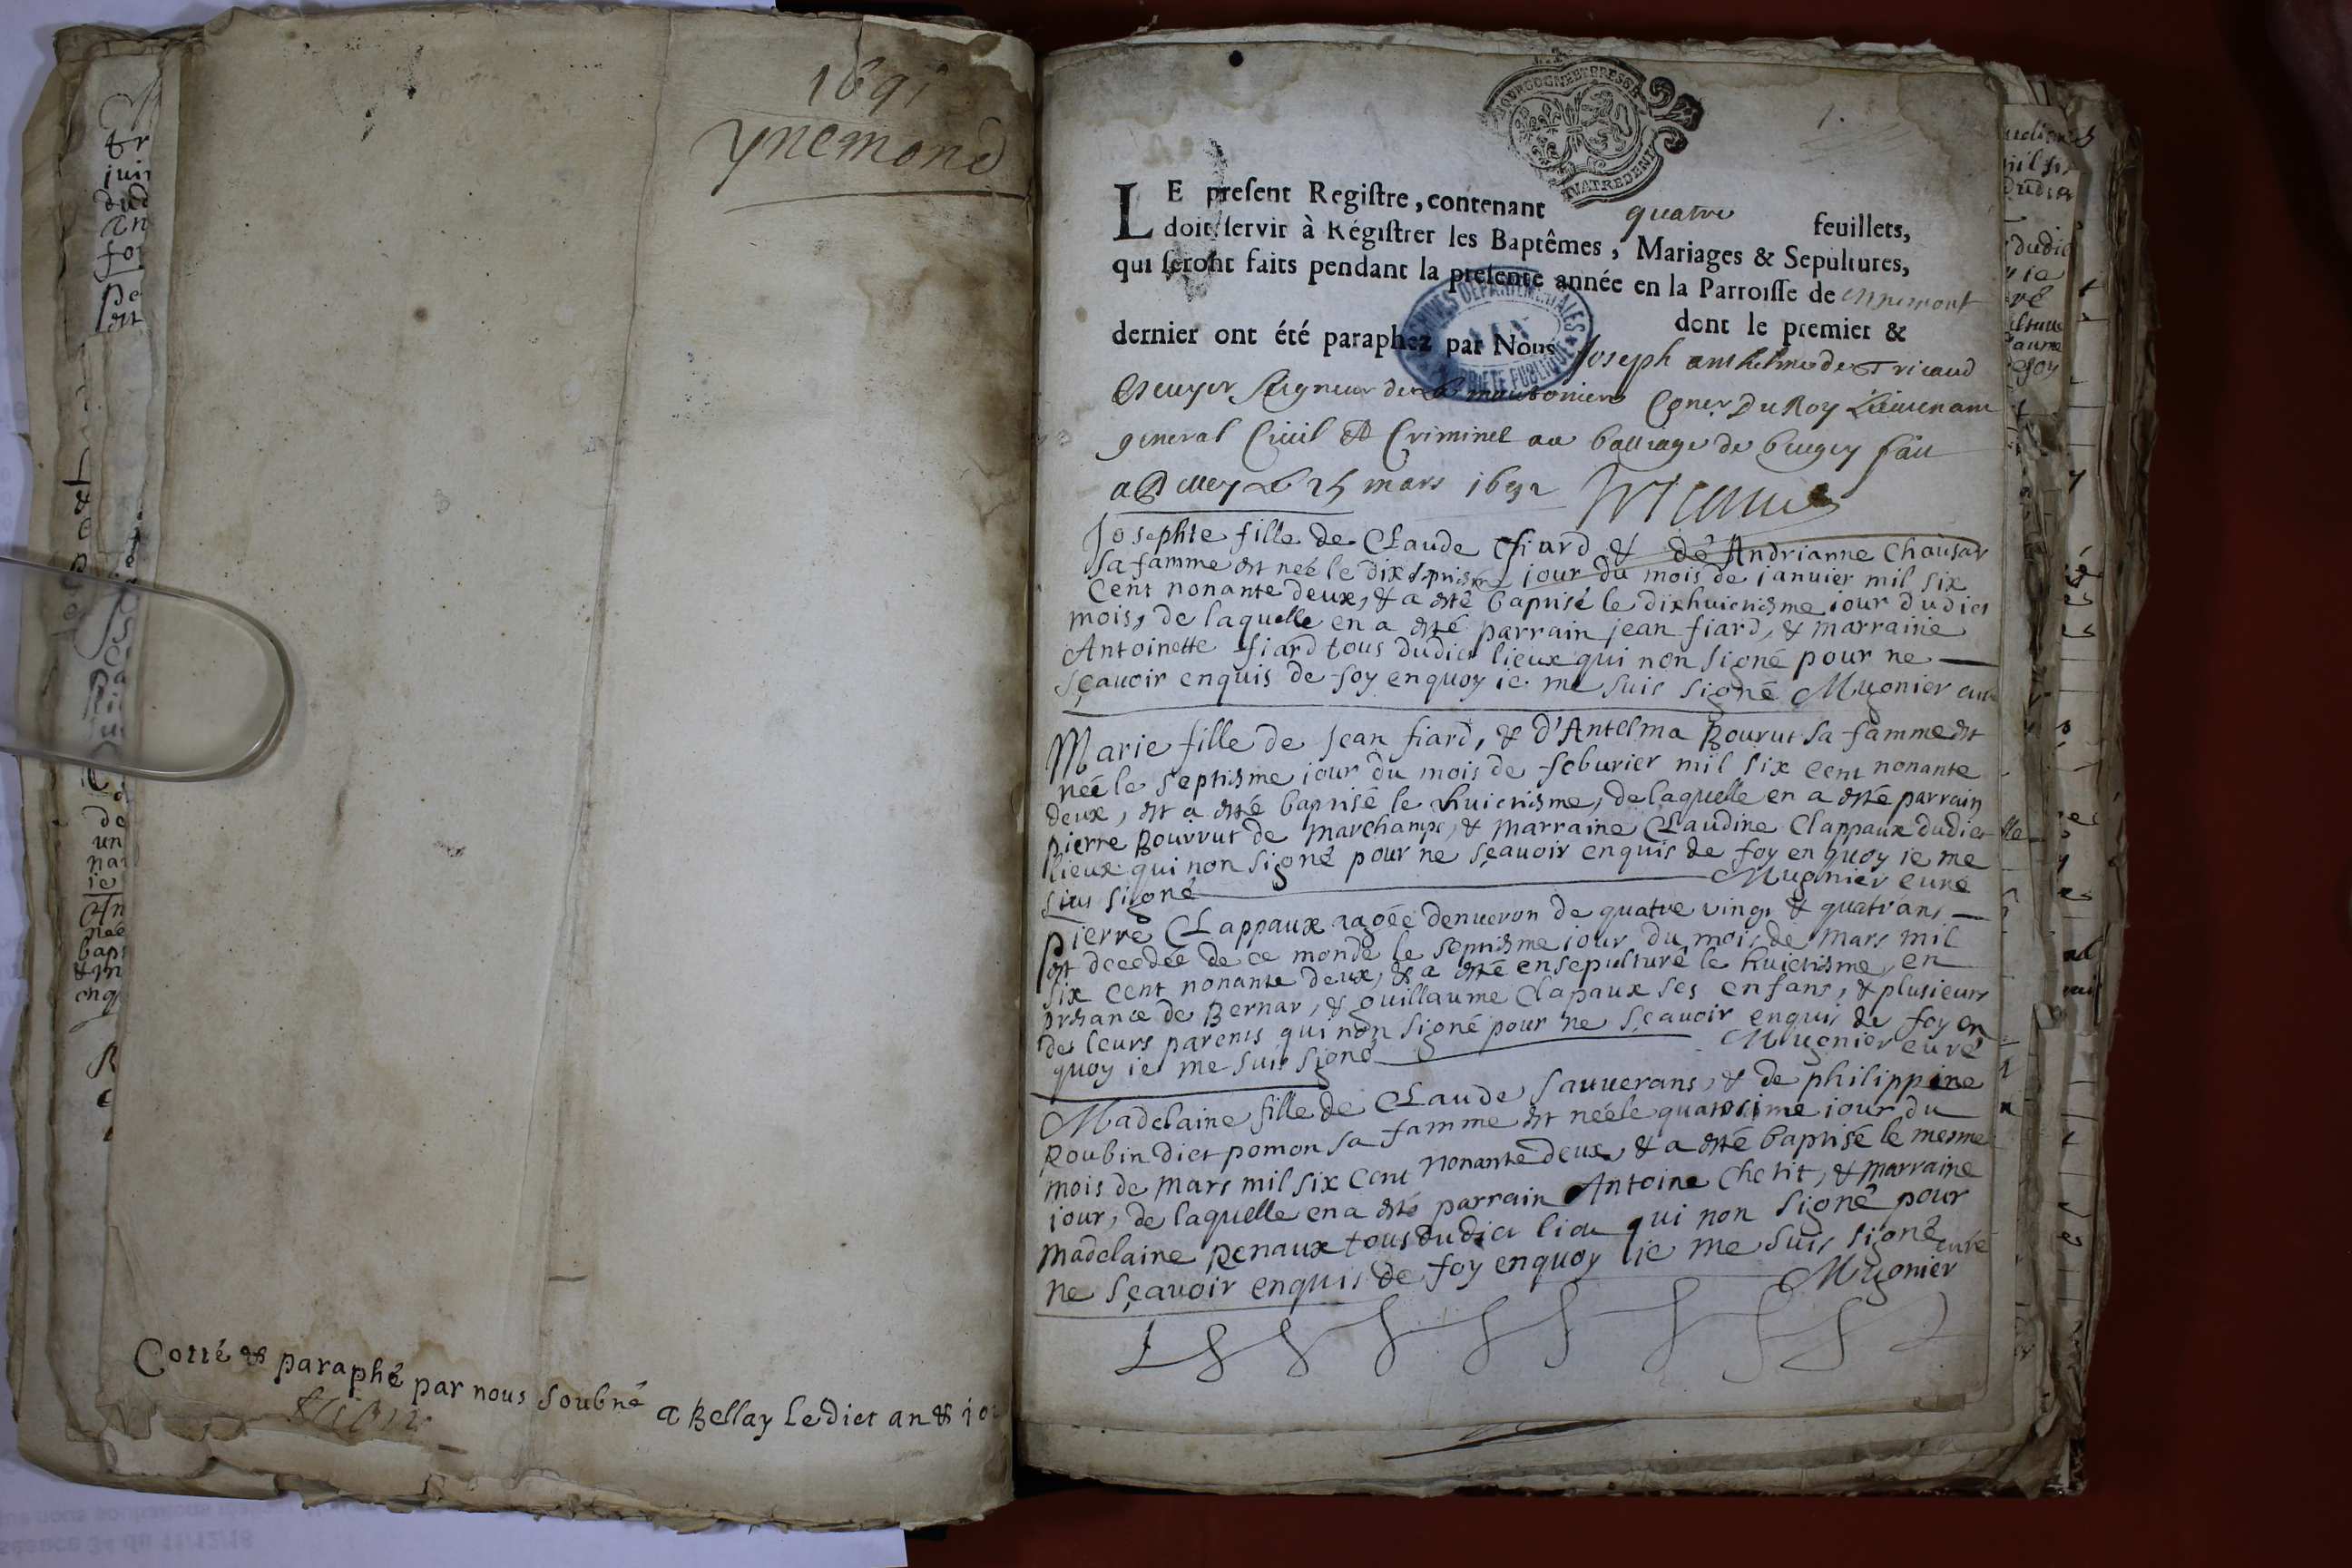 1691
ynemond
Cotté & paraphé par nous soubné a Bellay Ledict an & jo
BOURGOGNE ET BRESSE
QUATRE DEN
1.
LE present Registre, contenant quatre feuillets,
doit servir à Régistrer les Baptêmes, Mariages & Sepultures,
qui seront faits pendant la presente année en la Parroisse de
dont le premier &
dernier ont été paraphez par Nous Joseph anthelme de Tricaud
ARCHIVES DEPARTEMENTALES
PROPRIETE PUBLIQUE
Escuyer seigneur de Coner Du Roy Lieutenant
general Civil & Criminel au balliage de bugey fait
a Belley le 25 mars 1692
Josephte fille de Claude fiard & de Andrianne Chausar
sa famme est neé le dix septiesme jour du mois de januier mil six
cent nonante deux, & a esté baptisé le dixhuictiesme iour dudict
mois, de laquelle en a esté parrain jean fiard, & marraine
Antoinette fiard tous dudict lieux qui non signé pour ne
sçauoir enquis de foy enquoy ie me suis signé Mugonier curé
Marie fille de Jean fiard, & d'Antelma Bourut sa famme est
neé le septiesme iour du mois de feburier mil six cent nonante
deux, et a esté baptisé le huictiesme, de laquelle en a esté parrain
pierre Bourrut de marchamps, & marraine Claudine Clappaux dudict
lieux qui non signé pour ne sçauoir enquis de foy en quoy ie me
suis signé Mugnier curé
Pierre Clappaux aagéé denueron de quatre vingt & quatr ans
est decedée de ce monde le septiesme iour du mois de mars mil
six cent nonante deux, & a esté ensepulturé le huictiesme, en
presance de Bernar, & guillaume Clapaux ses enfans, & plusieurs
des leurs parents qui non signé pour ne sçauoir enquis de foy en
quoy ie me suis signé Mugnier curé
Madelaine fille de Claude sauuerans, & de philippine
Roubin dict pomon sa famme est neéle quatorsime iour du
mois de mars mil six cent nonante deux, & a esté baptisé le mesme
iour, de laquelle en a esté parrain Antoine Chetit, & marraine
madelaine Renaux tous dudict lieu qui non signé pour
ne sçavoir enquis de foy enquoy ie me suis signé
Mugonier curé